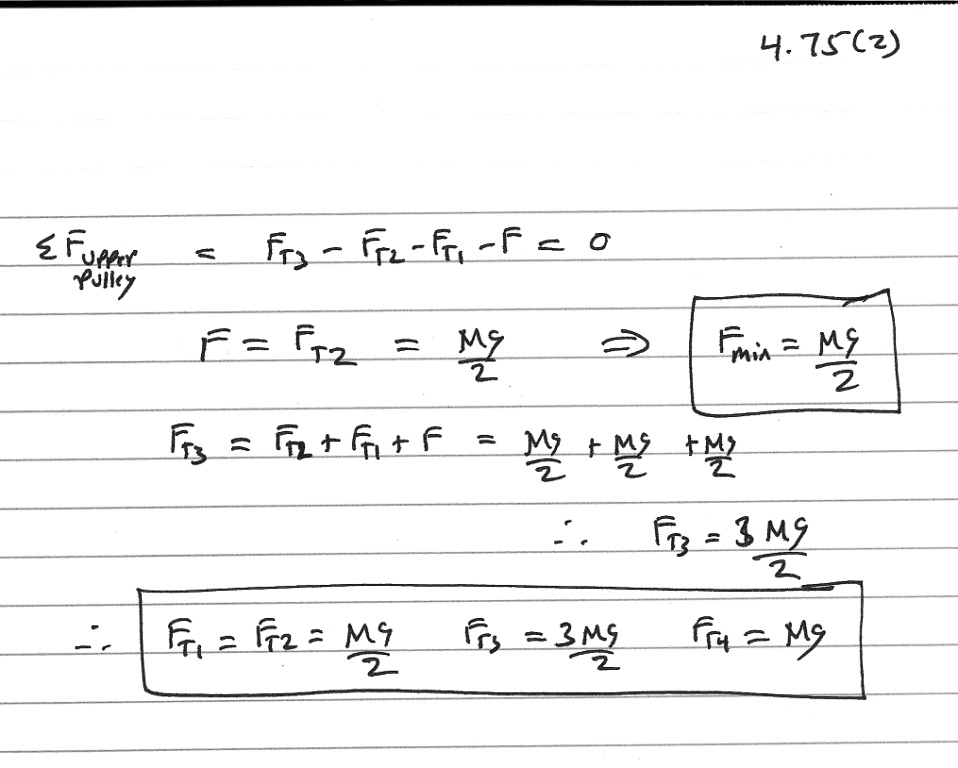 4.75(2)
ΣF upper pulley = F_T3 - F_T2 - F_T1 - F = 0
F = F_T2 = Mg/2 ⇒ F_min = Mg/2
F_T3 = F_T2 + F_T1 + F = Mg/2 + Mg/2 + Mg/2
∴ F_T3 = 3Mg/2
∴ F_T1 = F_T2 = Mg/2 F_T3 = 3Mg/2 F_T4 = Mg